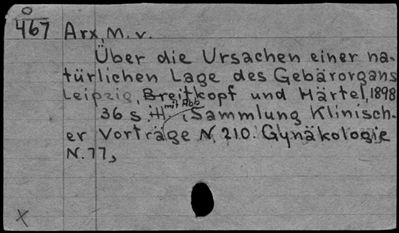 467 Arx, M. v.
Über die Ursachen einer na-
türlichen Lage des Gebärorgans
Leipzig, Breitkopf und Härtel, 1898
mit Abb
36 s. (Sammlung Klinisch-
er Vorträge N. 210. Gynäkologie
N. 77,
x